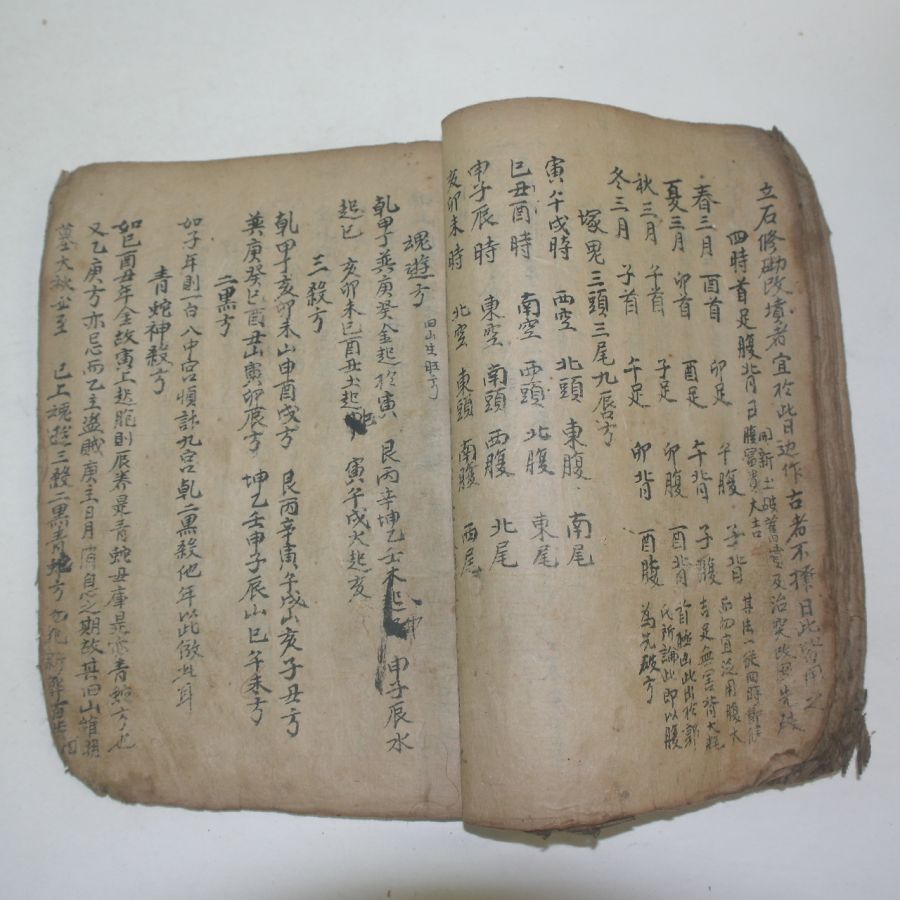 立石修砌改墳者宜於此日也作古者不擇日此皆用之
四時首足腹背日 腹富貴大吉 開新土破舊
春三月 酉首 卯足 午腹 子背
夏三月 卯首 酉足 午背 子腹
秋三月 午首 子足 卯腹 酉背
冬三月 子首 午足 卯背 酉腹 為先破方
塚鬼三頭三尾九辰方
寅午戌時 西空 北頭 東腹 南尾
巳丑酉時 南空 西頭 北腹 東尾
申子辰時 東空 南頭 西腹 北尾
亥卯未時 北空 東頭 南腹 西尾
魂遊方 旧山生旺方
乾甲丁巽庚癸金起於寅 艮丙辛坤乙壬木起 申子辰水
起巳 亥卯未巳酉丑土起 寅午戌火起亥
三殺方
乾甲丁亥卯未山申酉戌方 艮丙辛寅午戌山亥子丑方
巽庚癸巳酉丑山寅卯辰方 坤乙壬申子辰山巳午未方
二黑方
如子年則一白入中宮順計九宮乾二黑殺他年以此倣此耳
青蛇神殺方
如巳酉丑年金故寅上起胞則辰養是青蛇丑庫是 青蛇方也
又乙庚方亦忌而乙主盜賊庚主日月消息之期故其旧山
墓大 巳上魂遊三殺二黑青蛇方勿犯